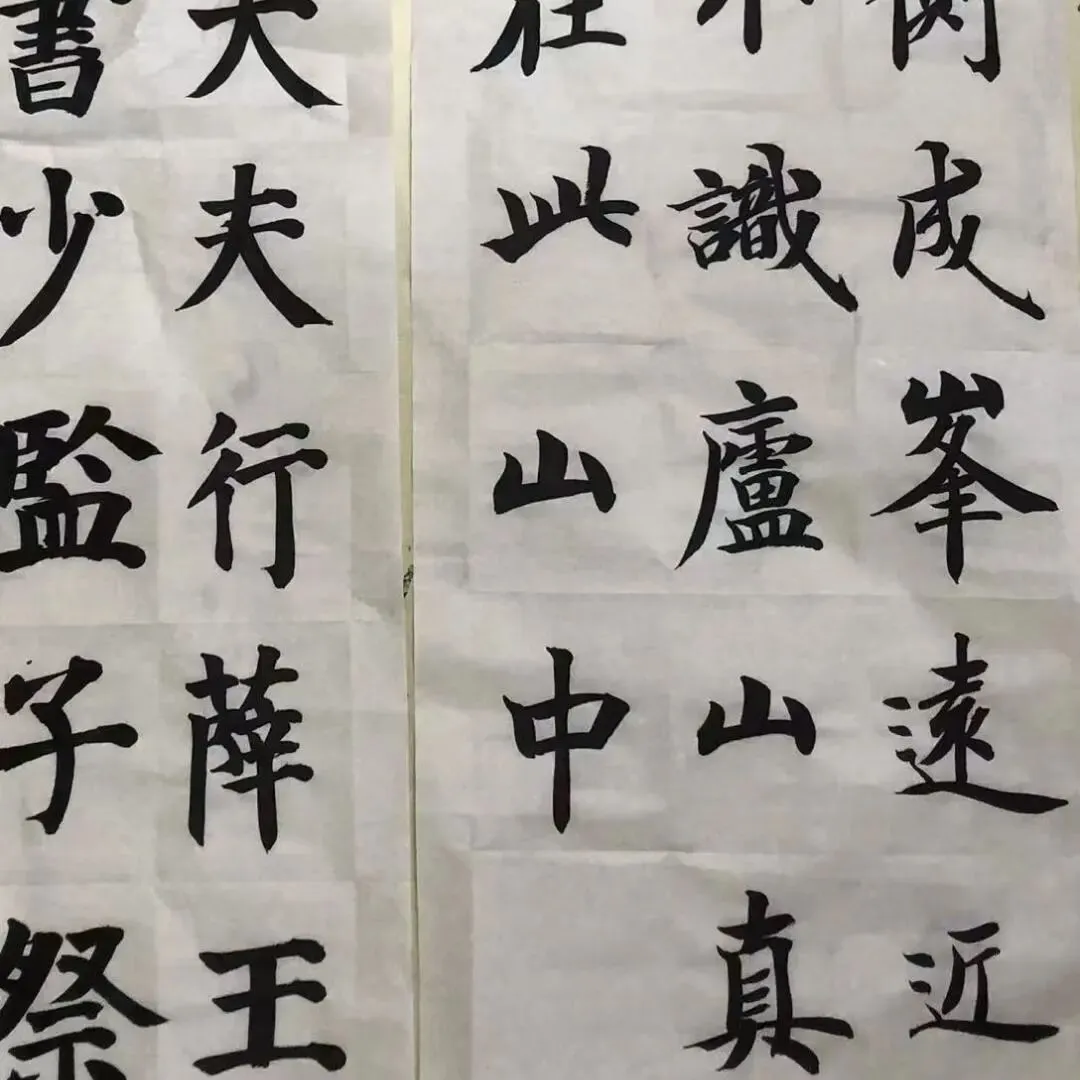 側成峯遠近
不識廬山真
在此山中
大夫行薛王
書少監子祭